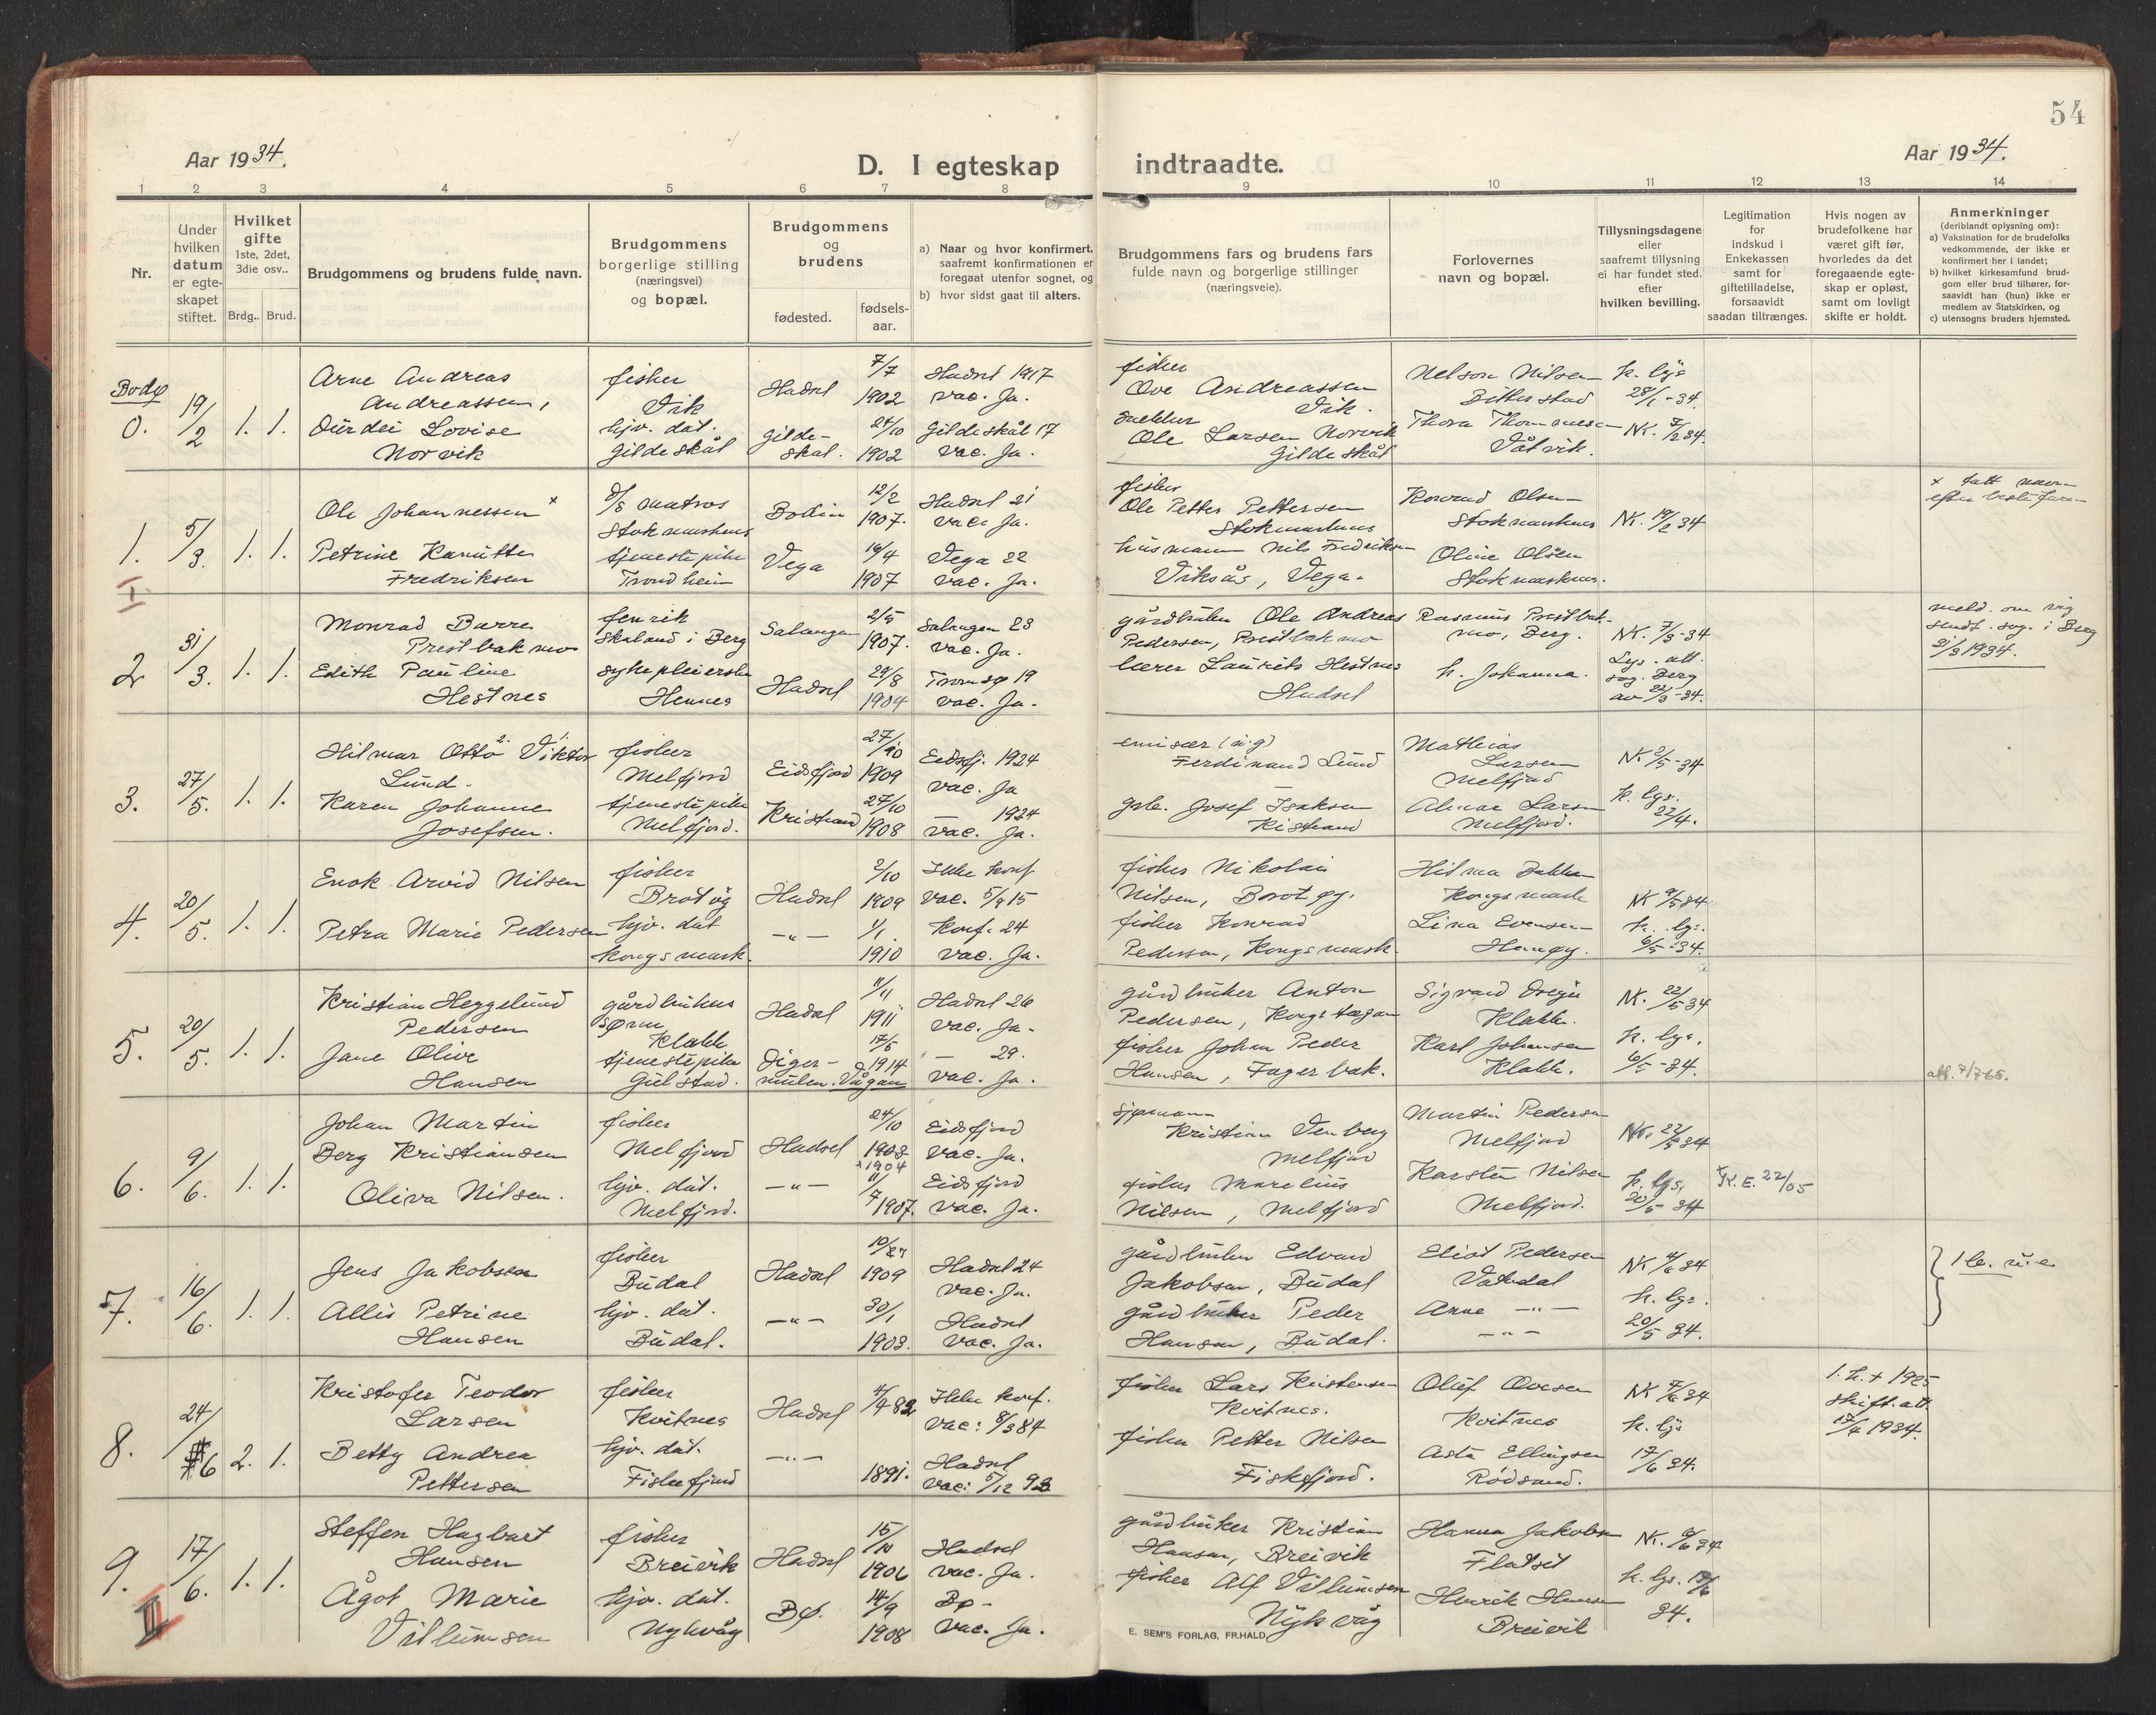 54
Aar 1934.
D. I egteskap
indtraadte.
Aar 1934.
1 2 3 4 5 6 7 8 9 10 11 12 13 14
Nr.
Under
hvilken
datum
er egte-
skapet
stiftet.
Hvilket
gifte
1ste, 2det,
3die osv..
Brdg.. Brud.
Brudgommens og brudens fulde navn.
Brudgommens
borgerlige stilling
(næringsvei)
og bopæl.
Brudgommens
og
brudens
fødested.
fødsels-
aar.
a) Naar og hvor konfirmert,
saafremt konfirmationen er
foregaat utenfor sognet, og
b) hvor sidst gaat til alters.
Brudgommens fars og brudens fars
fulde navn og borgerlige stillinger
(næringsveie).
Forlovernes
navn og bopæl.
Tillysningsdagene
eller
saafremt tillysning
ei har fundet sted,
efter
hvilken bevilling.
Legitimation
for
indskud i
Enkekassen
samt for
giftetilladelse,
forsaavidt
saadan tiltrænges.
Hvis nogen av
brudefolkene har
været gift før,
hvorledes da det
foregaaende egte-
skap er opløst,
samt om lovligt
skifte er holdt.
Anmerkninger
(deriblandt oplysning om):
a) Vaksination for de brudefolks
vedkommende, der ikke er
konfirmert her i landet;
b) hvilket kirkesamfund brud-
gom eller brud tilhører, for-
saavidt han (hun) ikke er
medlem av Statskirken, og
c) utensogns bruders hjemsted.
Bodø
0.
19/2
1. 1.
Arne Andreas
Andreassen,
Ovidei Lovise
Norvik
fisker
Vik
hjv. dat.
Gildeskål
Hadsel
Gilde-
skål.
7/7
1902
24/10
1902
Hadsel 1917
vac. Ja.
Gildeskål 17
vac. Ja.
fisker
Ove Andreassen
Vik.
snekker
Ole Larsen Norvik
Gildeskål
Nelson Nilsen
Bitterstad
Thora Thomassen
Våtvik.
k. lys
28/1-34.
NK. 7/2 34.
1.
I
5/3.
1. 1.
Ole Johannessen x
Petrine Kanutte
Fredriksen
D/S matros
Stokmarknes
tjenestepike
Trondheim
Bodin
Vega
12/2
1907.
19/4
1907
Hadsel 21
vac. Ja.
Vega 22
vac. Ja.
fisker
Ole Petter Pettersen
Stokmarknes
husmann Nils Fredriksen
Viksås, Vega.
Konrad Olsen
Stokmarknes
Oline Olsen
Stokmarknes.
NK. 19/2 34
x tatt navn
efter bestefaren
2
31/3.
1. 1.
Monrad Barre
Prestbakmo
Edith Pauline
Hestnes
fenrik
Skaland i Berg
sykepleierske
Hennes
Salangen
Hadsel
2/5
1907.
29/8
1904
Salangen 23
vac. Ja.
Tromsø 19
vac. Ja.
gårdbruker Ole Andreas
Pedersen, Prestbakmo
lærer Laurits Hestnes
Hadsel
Rasmus Prestbak-
mo, Berg.
h. Johanna.
NK. 7/3-34
Lys. att.
sog. Berg
av 22/3-34.
meld. om vig.
sendt. sog. i Berg
31/3 1934.
3.
27/5.
1. 1.
Hilmar Otto 2. Viktor 1.
Lund.
Karen Johanne
Josefsen.
fisker
Melfjord
tjenestepike
Melfjord.
Eidsfjord
Kristrand
27/10
1909
27/10
1908
Eidsfj. 1924
vac. Ja
— 1924
vac. Ja.
emisær
Ferdinand Lund
grb. Josef Isaksen
Kistrand
Mathias
Larsen
Melfjord
Almar Larsen
Melfjord.
NK 2/5-34
k. lys.
22/4.
4.
20/5.
1. 1.
Enok Arvid Nilsen
Petra Marie Pedersen
fisker
Brotøy
hjv. dat
Kongsmark.
Hadsel
—"—
2/10
1909
1/1
1910
Ikke konf
vac. 5/9 15
Konf. 24
vac. Ja.
fisker Nikolai
Nilsen, Brotøy.
fisker Konrad
Pedersen, Kongsmark.
Hilma
Kongsmark
Lina Evensen
Hanøy.
NK 9/5 34
k. lys.
6/5-34.
5.
20/5.
1. 1.
Kristian Heggelund
Pedersen
Jane Olive
Hansen
gårdbrukers
sønn
Klakk
tjenestepike
Gulstad.
Hadsel
Diger-
mulen. Vågan
11/11
1911
17/5
1914
Hadsel 26
vac. Ja.
— 29.
vac. Ja.
gårdbruker Anton
Pedersen,
fisker Johan Peder
Hansen, Fagerbak.
Sigvard
Klakk.
Karl Johansen
Klakk.
NK. 22/5 34
k. lys.
6/5-34.
att. 7/7 65.
6.
9/6.
1. 1.
Johan Martin
Berg Kristiansen
Oliva Nilsen.
fisker
Melfjord
hjv. dat.
Melfjord.
Hadsel
—"—
24/10
1903
x 1904
11/7
1907.
Eidsfjord
vac. Ja.
Eidsfjord
vac. Ja.
sjømann
Kristian Venberg
Melfjord
fisker Marelius
Nilsen, Melfjord
Martin Pedersen
Melfjord
Karsten Nilsen
Melfjord.
NK. 22/5 34
k. lys,
20/5 34
x K.E. 22/05
7.
16/6.
1. 1.
Jens Jakobsen
Allis Petrine
Hansen
fisker
Budal
hjv. dat.
Budal.
Hadsel
—"—
1909
30/1
1903.
Hadsel 24
vac. Ja.
Hadsel
vac. Ja.
gårdbruker Edvard
Jakobsen, Budal
gårdbruker Peder
Hansen, Budal.
Eliot Pedersen
Vatndal
Arne —"—
—"—
NK 4/6 34
k. lys.
20/5 34.
8.
24/6
2. 1.
Kristofer Teodor
Larsen
Betty Andrea
Pettersen
fisker
Kvitnes
hjv. dat.
Fiskefjord
Hadsel
—"—
4/4 82
1891.
Ikke konf.
vac: 8/3 84
Hadsel
vac: 5/12 93
fisker Lars Kristensen
Kvitnes.
fisker Petter Nilsen
Fiskfjord.
Oluf Ovesen
Kvitnes
Asta Ellingsen
Rødsand.
NK 7/6 34
k. lys
17/6 34.
1. h. + 1925
skift. att.
17/4 1934.
9.
II
17/6.
1. 1.
Steffen Hagbart
Hansen
Ågot Marie
Villumsen
fisker
Breivik
hjv. dat.
Nykvåg
Hadsel
Bø.
15/10
1906
14/9
1908
Hadsel
vac. Ja.
Bø -
vac. Ja.
gårdbruker Kristian
Hansen, Breivik
fisker Alf Villumsen
Nykvåg
Hanna Jakobsen
Flatset
Henrik Hansen
Breivik
NK. 9/6 34
k. lys.
34.
E. SEM'S FORLAG, FR.HALD